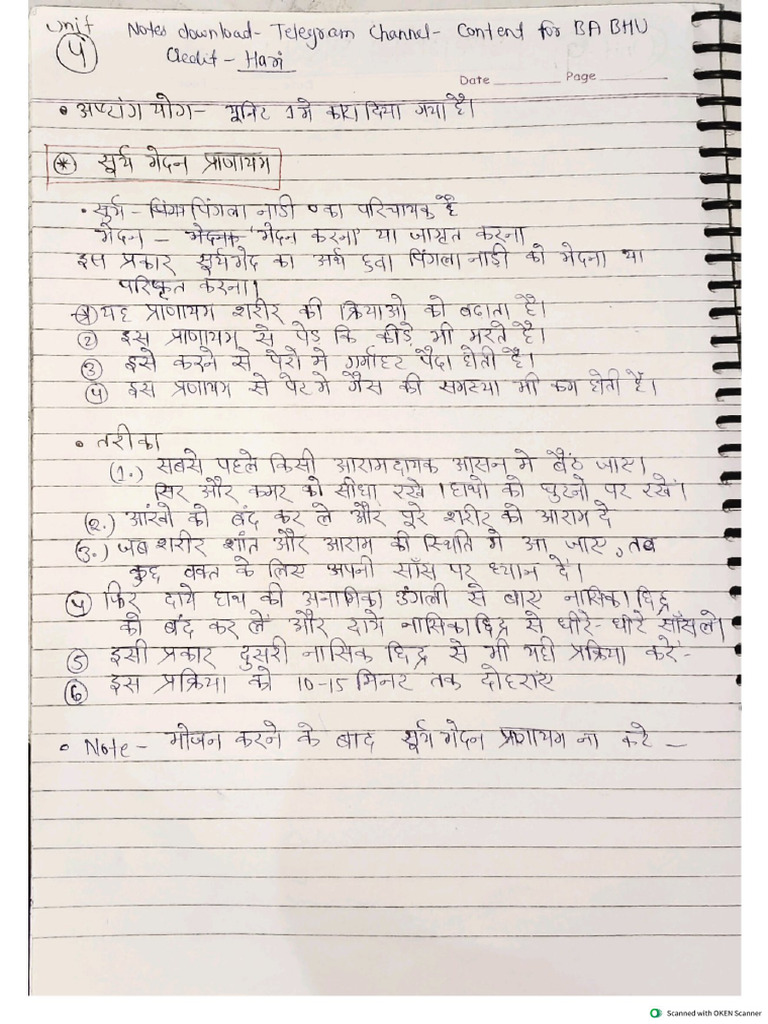 Unit
4
Notes download- Telegram Channel- Content for BA BHU
Credit - Hari
Date Page
• अष्टांग योग - यूनिट 1 मे करा दिया गया है।
* सूर्य भेदन प्राणायम
• सुर्य - पिंगला नाडी का परिचायक है
भेदन - 'भेदन करना' या जाग्रत करना
इस प्रकार सूर्यभेद का अर्थ हुवा पिंगला नाड़ी को भेदना या
परिष्कृत करना।
1 यह प्राणायम शरीर की क्रियाओ को बढाता है।
2 इस प्राणायम से पेड़ कि कीड़े भी मरते है।
3 इसे करने से पेरो मे गर्माहट पैदा होती है।
4 इस प्रणायम से पेट मे गैस की समस्या भी कम होती है।
• तरीका
(1.) सबसे पहले किसी आरामदायक आसन मे बैठ जाए।
सिर और कमर को सीधा रखे। हाथो को घुटनो पर रखें।
(2.) आंखो को बंद कर ले और पूरे शरीर को आराम दे
(3.) जब शरीर शांत और आराम की स्थिति मे आ जाए, तब
कुछ वक्त के लिए अपनी साँस पर ध्यान दें।
4 फिर दाये हाथ की अनामिका उंगली से बाए नासिका छिद्र
को बंद कर लें और दाये नासिका छिद्र से धीरे-धीरे साँस ले।
5 इसी प्रकार दुसरी नासिक छिद्र से भी यही प्रक्रिया करे-
6 इस प्रक्रिया को 10-15 मिनट तक दोहराए
• Note - भोजन करने के बाद सूर्य भेदन प्रणायम ना करे -
Scanned with OKEN Scanner